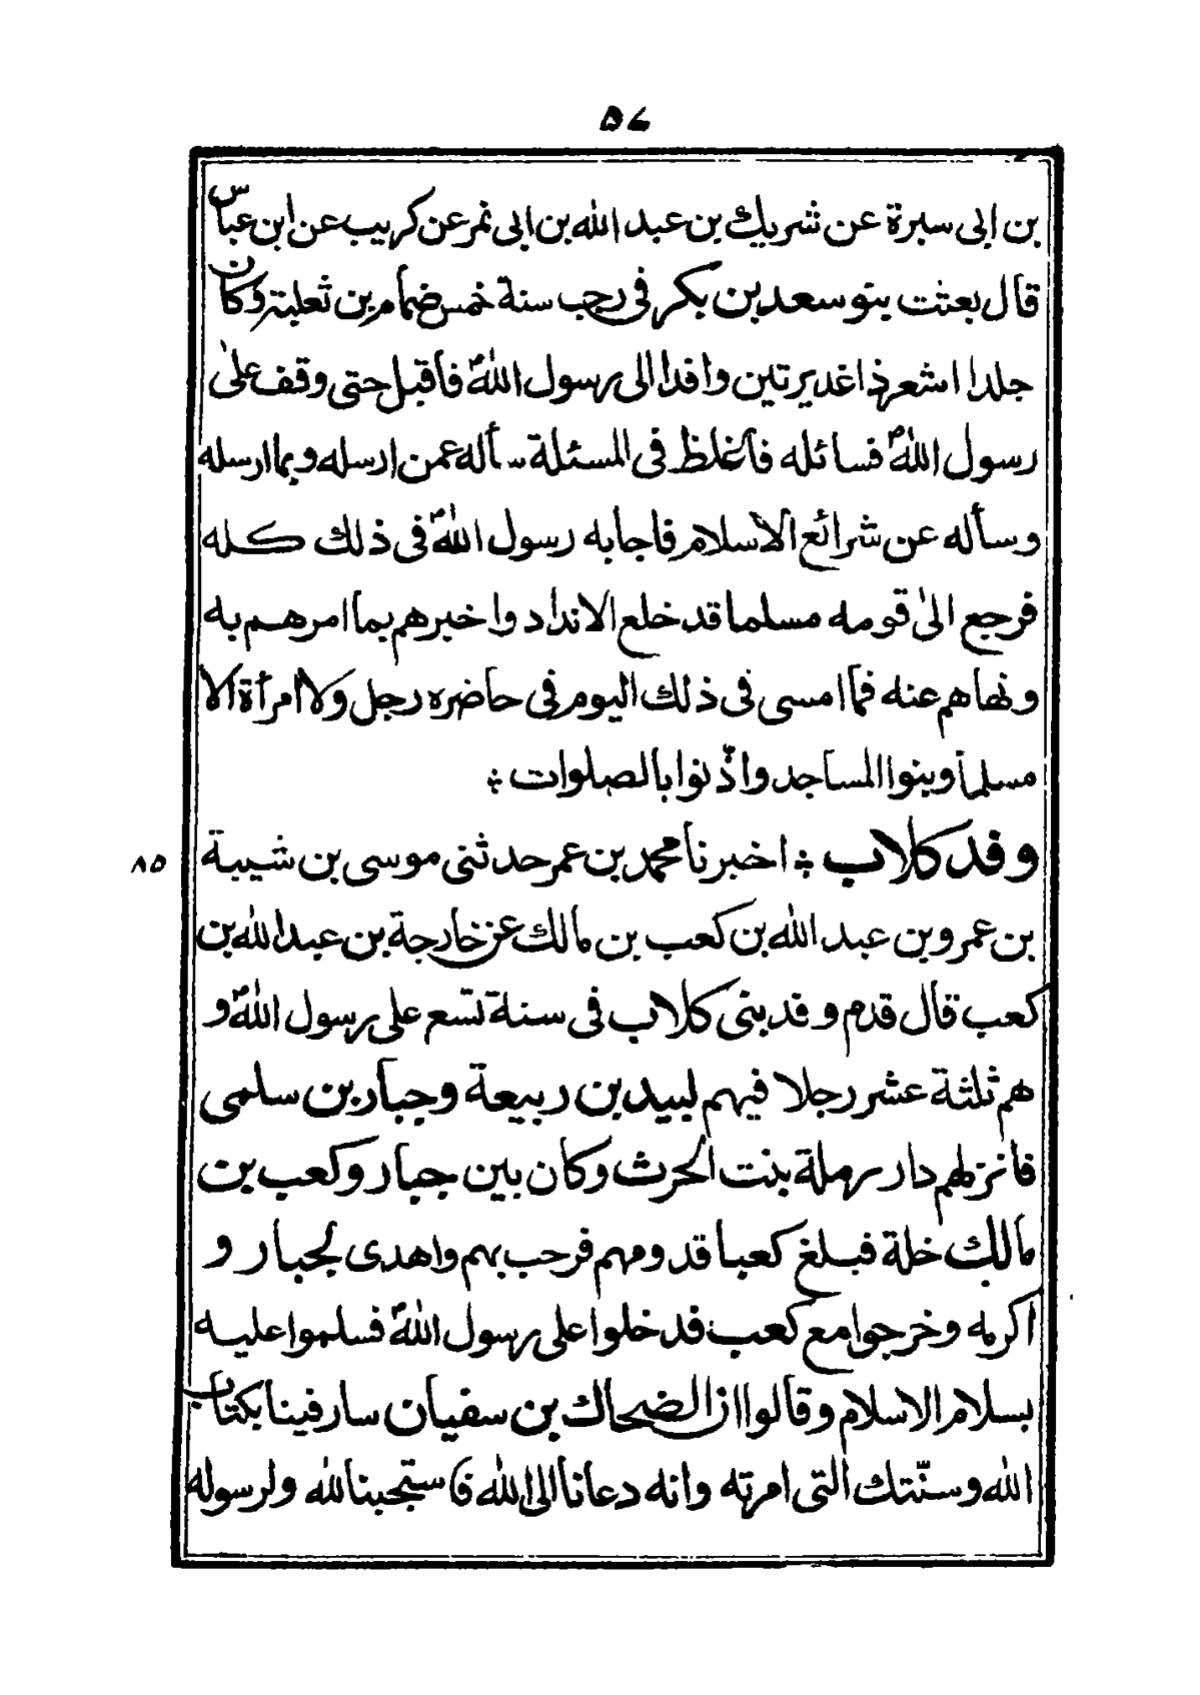 ۵۶
بن ابى سبرة عن شريك بن عبد الله بن ابى نمر عن كريب عن ابن عباس
قال بعثت بنو سعد بن بكر فى رجب سنة خمس ضمام بن ثعلبة وكان
جلدا اشعر ذا غديرتين وافدا الى رسول اللهؐ فأقبل حتى وقف على
رسول اللهؐ فسائله فأغلظ فى المسئلة سأله عمن ارسله وبما ارسله
وسأله عن شرائع الاسلام فاجابه رسول اللهؐ فى ذلك كله
فرجع الىٰ قومه مسلما قد خلع الانداد واخبرهم بما امرهم به
ونهاهم عنه فما امسى فى ذلك اليوم فى حاضره رجل ولا امرأة الا
مسلماً وبنوا المساجد واذّنوا بالصلوات ؞
وفد كلاب ؞ اخبرنا محمد بن عمر حدثنى موسى بن شيبة
۸۵
بن عمرو بن عبد الله بن كعب بن مالك عن خارجة بن عبد الله بن
كعب قال قدم وفد بنى كلاب فى سنة تسع على رسول اللهؐ و
هم ثلثة عشر رجلا فيهم لبيد بن ربيعة وجبار بن سلمى
فانزلهم دار رملة بنت الحرث وكان بين جبار وكعب بن
مالك خلة فبلغ كعبا قدومهم فرحب بهم واهدى لجبار و
اكرمه وخرجوا مع كعب فدخلوا على رسول اللهؐ فسلموا عليه
بسلام الاسلام وقالوا ان الضحاك بن سفيان سار فينا بكتاب
الله وسنّتك التى امرته وانه دعانا الى الله فاستجبنا لله ولرسوله